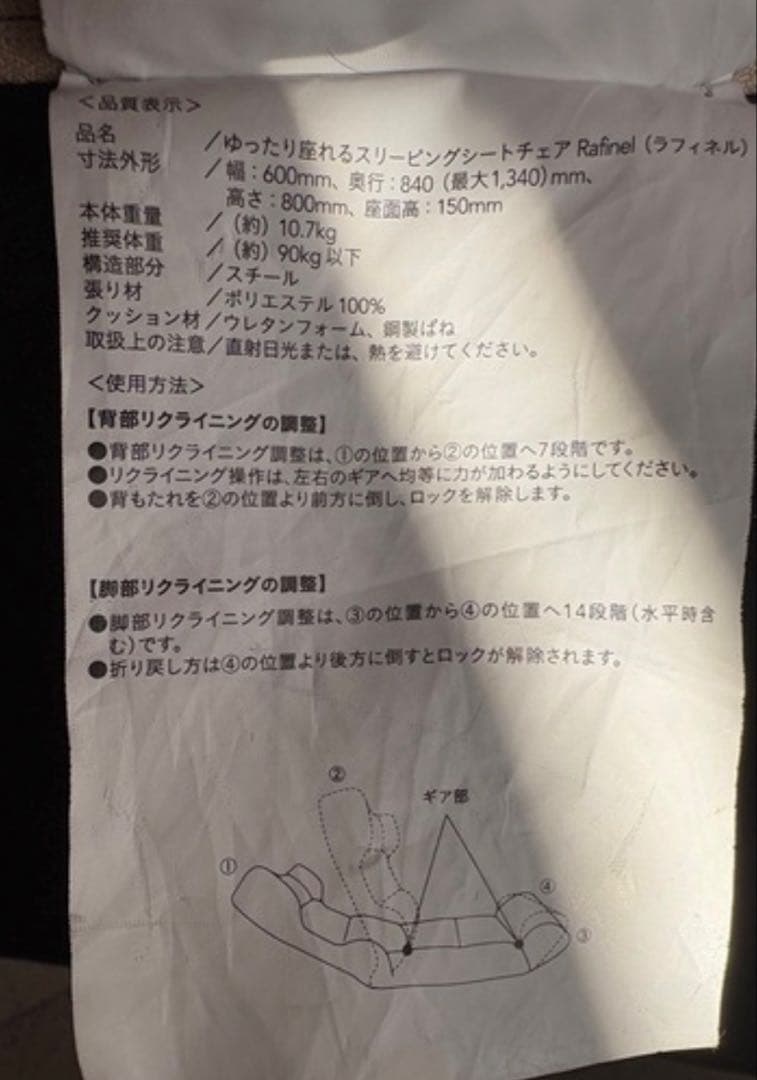 ＜品質表示＞
品名 ／ゆったり座れるスリーピングシートチェア Rafinel（ラフィネル）
寸法外形 ／幅：600mm、奥行：840（最大1,340）mm、
高さ：800mm、座面高：150mm
本体重量 ／（約）10.7kg
推奨体重 ／（約）90kg以下
構造部分 ／スチール
張り材 ／ポリエステル100%
クッション材／ウレタンフォーム、鋼製ばね
取扱上の注意／直射日光または、熱を避けてください。
＜使用方法＞
【背部リクライニングの調整】
●背部リクライニング調整は、①の位置から②の位置へ7段階です。
●リクライニング操作は、左右のギアへ均等に力が加わるようにしてください。
●背もたれを②の位置より前方に倒し、ロックを解除します。
【脚部リクライニングの調整】
●脚部リクライニング調整は、③の位置から④の位置へ14段階（水平時含
む）です。
●折り戻し方は④の位置より後方に倒すとロックが解除されます。
②
ギア部
①
④
③